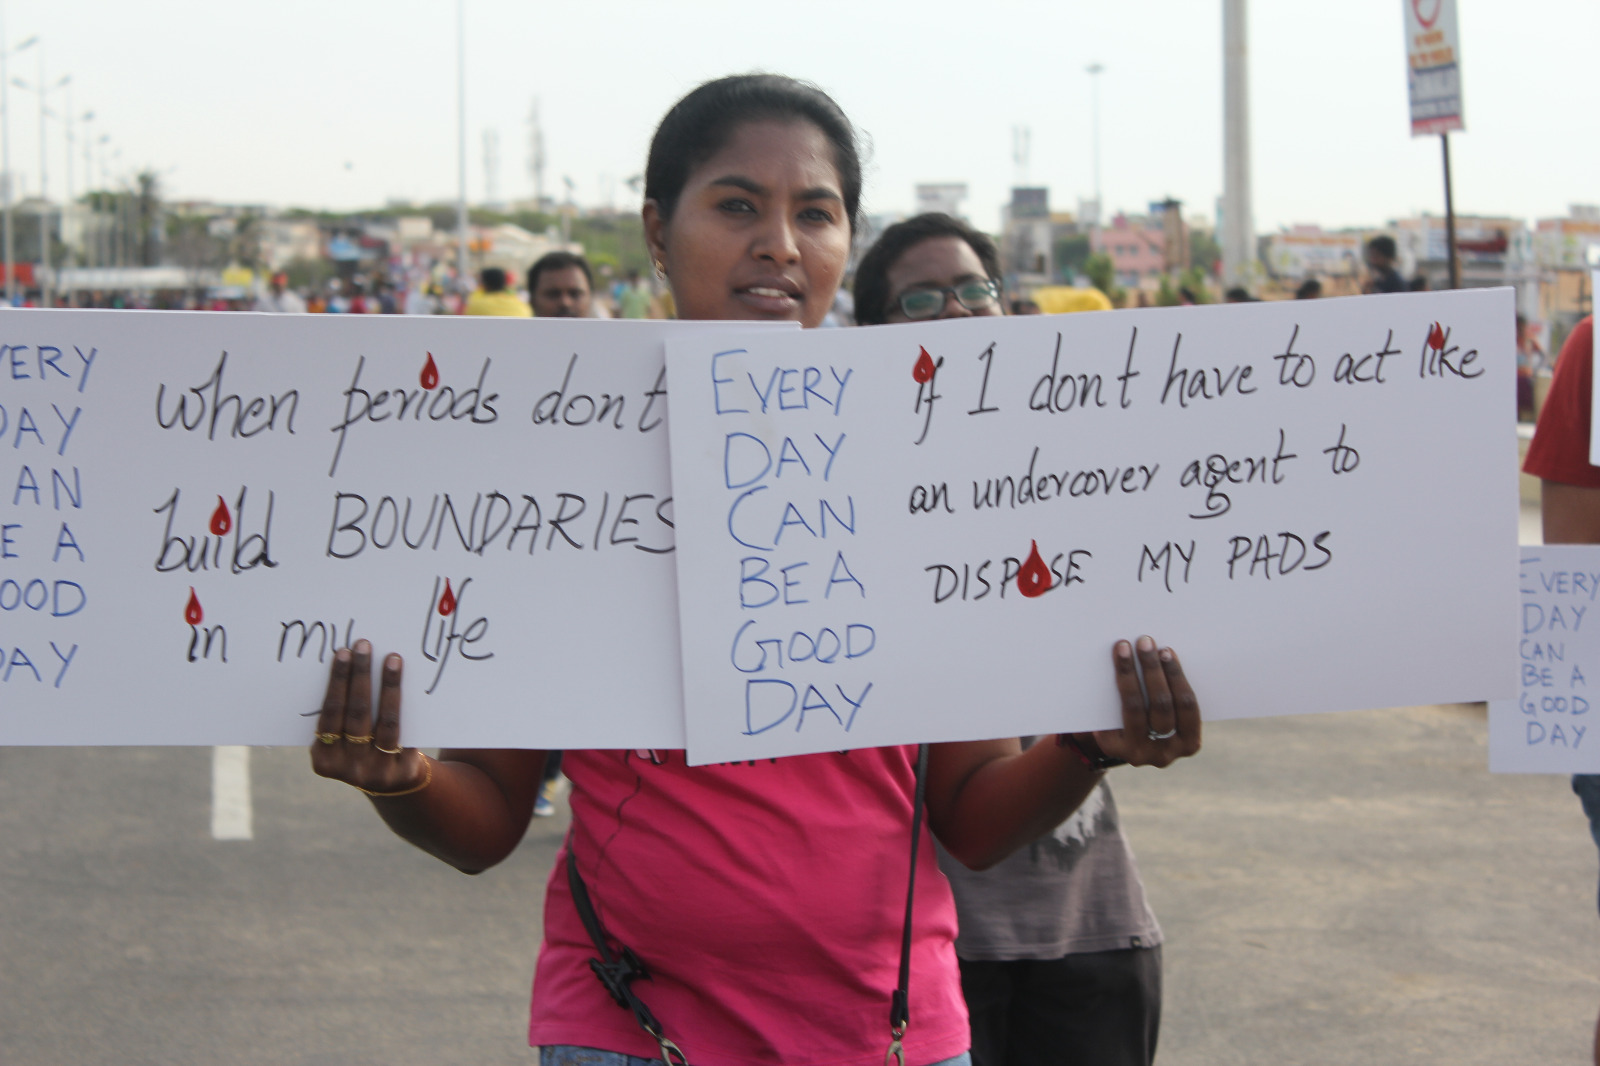 VERY
DAY
AN
E A
OOD
DAY
when periods don't
build BOUNDARIES
in my life
EVERY
DAY
CAN
BE A
GOOD
DAY
if I don't have to act like
an undercover agent to
DISPOSE MY PADS
EVERY
DAY
CAN
BE A
GOOD
DAY